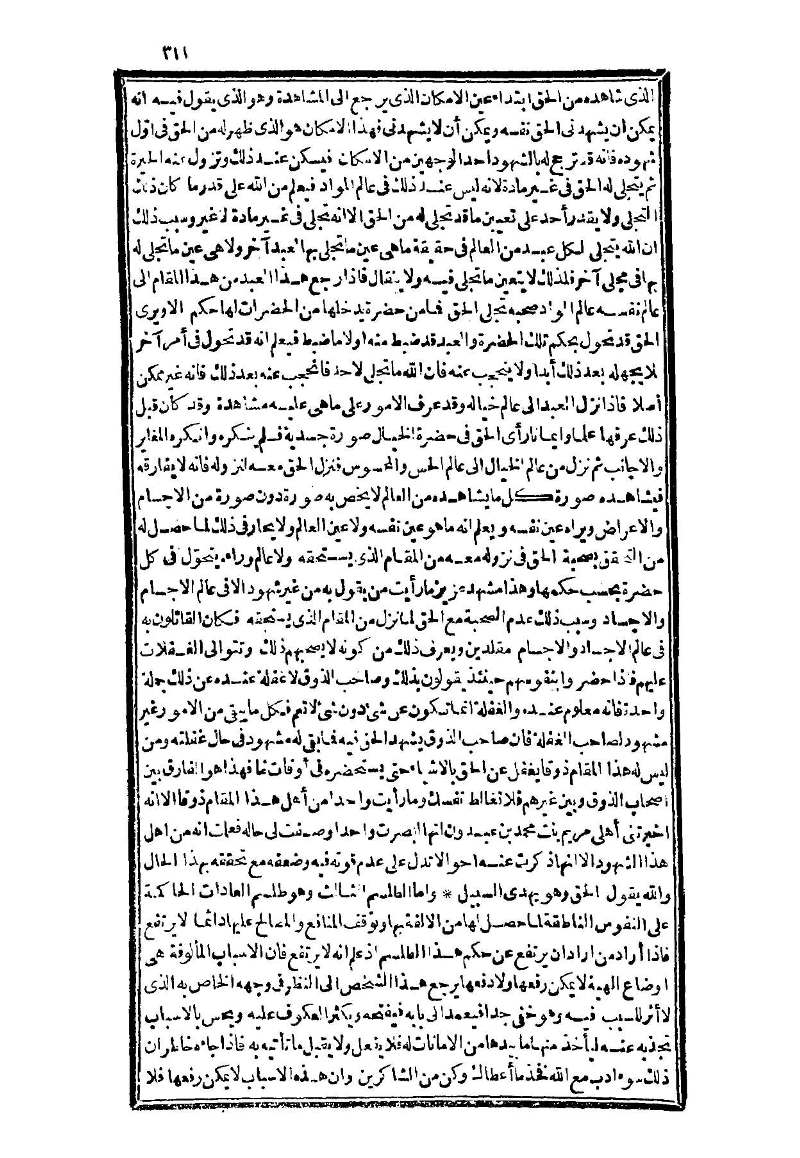 ٣١١
الذى شاهده من الحق ابتداء عين الامكان الذى يرجع الى المشاهدة وهو الذى يقول فيه انه
يمكن ان يشهدنى الحق نفسه ويمكن أن لا يشهدنى فهذا الامكان هو الذى ظهر له من الحق فى أول
شهوده فانه قد ترجع له بالشهود احد الوجهين من الامكان فيسكن عند ذلك وتزول عنه الحيرة
ثم يتجلى له الحق فى غير مادة لانه ليس عند ذلك فى عالم المواد فيعلم من الله على قدر ما كان ذلك
التجلى ولا يقدر أحد على تعيين ما قد تجلى له من الحق الا انه تجلى فى غير مادة لا غير وسبب ذلك
ان الله يتجلى لكل عبد من العالم فى حقيقة ما هى عين ما تجلى بها لعبد آخر ولا هى عين ما تجلى له
بها فى مجلى آخر فلذلك لا يتعين ما تجلى فيه ولا ينقال فاذا رجع هذا العبد من هذا المقام الى
عالم نفسه عالم المواد صحبه تجلى الحق فما من حضرة يدخلها من الحضرات لها حكم الا ويرى
الحق قد تحول بحكم تلك الحضرة والعبد قد ضبط منه اولا ما ضبط فيعلم انه قد تحول فى أمر آخر
فلا يجهله بعد ذلك أبدا ولا ينحجب عنه فان الله ما تجلى لاحد فانحجب عنه بعد ذلك فانه غير ممكن
أصلا فاذا نزل العبد الى عالم خياله وقد عرف الامور على ما هى عليه مشاهدة وقد كان قبل
ذلك عرفها علما وايمانا رأى الحق فى حضرة الخيال صورة جسدية فلم ينكره وانكره المغاير
والاجانب ثم نزل من عالم الخيال الى عالم الحس والمحسوس فنزل الحق معه لنزوله فانه لا يفارقه
فيشاهده صورة كل ما يشاهده من العالم لا يخص به صورة دون صورة من الاجسام
والاعراض ويراه عين نفسه ويعلم انه ما هو عين نفسه ولا عين العالم ولا يحار فى ذلك لما حصل له
من التحقق بصحبة الحق فى نزوله معه من المقام الذى يستحقه ولا عالم وراءه يتحوّل فى كل
حضرة بحسب حكمها وهذا مشهد عزيز ما رأيت من يقول به من غير شهود الا فى عالم الاجسام
والاجساد وسبب ذلك عدم الصحبة مع الحق لما نزل من المقام الذى يستحقه فكان القائلون به
فى عالم الاجساد والاجسام مقلدين ويعرف ذلك من كونه لا يصحبهم ذلك وتتوالى الغفلات
عليهم فاذا حضروا بنفوسهم حينئذ يقولون بذلك وصاحب الذوق لا غفلة عنده عن ذلك جملة
واحدة فانه معلوم عنده والغفلة انما تكون عن شئ دون شئ لا تعم فكل ما يبقى من الامور غير
مشهود لصاحب الغفلة فان صاحب الذوق يشهد الحق فيه فما بقى له مشهود فى حال غفلته ومن
ليس له هذا المقام ذوقا يغفل عن الحق بالاشياء حتى يستحضره فى أوقات ما فهذا هو الفارق بين
اصحاب الذوق وبين غيرهم فلا تغالط نفسك وما رأيت واحدا من أهل هذا المقام ذوقا الا انه
اخبرتنى أهلى مريم بنت محمد بن عبدون انها ابصرت واحدا وصفت لى حاله فعلمت انه من اهل
هذا الشهود الا انها ذكرت عنه احوالا تدل على عدم قوته فيه وضعفه مع تحققه بهذا الحال
والله يقول الحق وهو يهدى السبيل * واما الطلسم الثالث وهو طلسم العادات الحاكمة
على النفوس الناطقة لما حصل لها من الالفة بها وتوقف المنافع والمصالح عليها دائما لا يرتفع
فاذا أراد من اراد ان يرتفع عن حكم هذا الطلسم اذ علم انه لا يرتفع فان الاسباب المألوفة هى
اوضاع الهية لا يمكن رفعها ولا دفعها يرجع هذا الشخص الى النظر فى وجهه الخاص به الذى
لا أثر للسبب فيه وهو خفى جدا فيعمد الى بابه فيفتحه ويكثر العكوف عليه ويحس بالاسباب
تجذبه عنه ليأخذ منها ما بيدها من الامانات له فلا يفعل ولا يقبل ما تأتيه به فاذا جاءه خاطر ان
ذلك سوء ادب مع الله فخذ ما أعطاك وكن من الشاكرين وان هذه الاسباب لا يمكن رفعها فلا